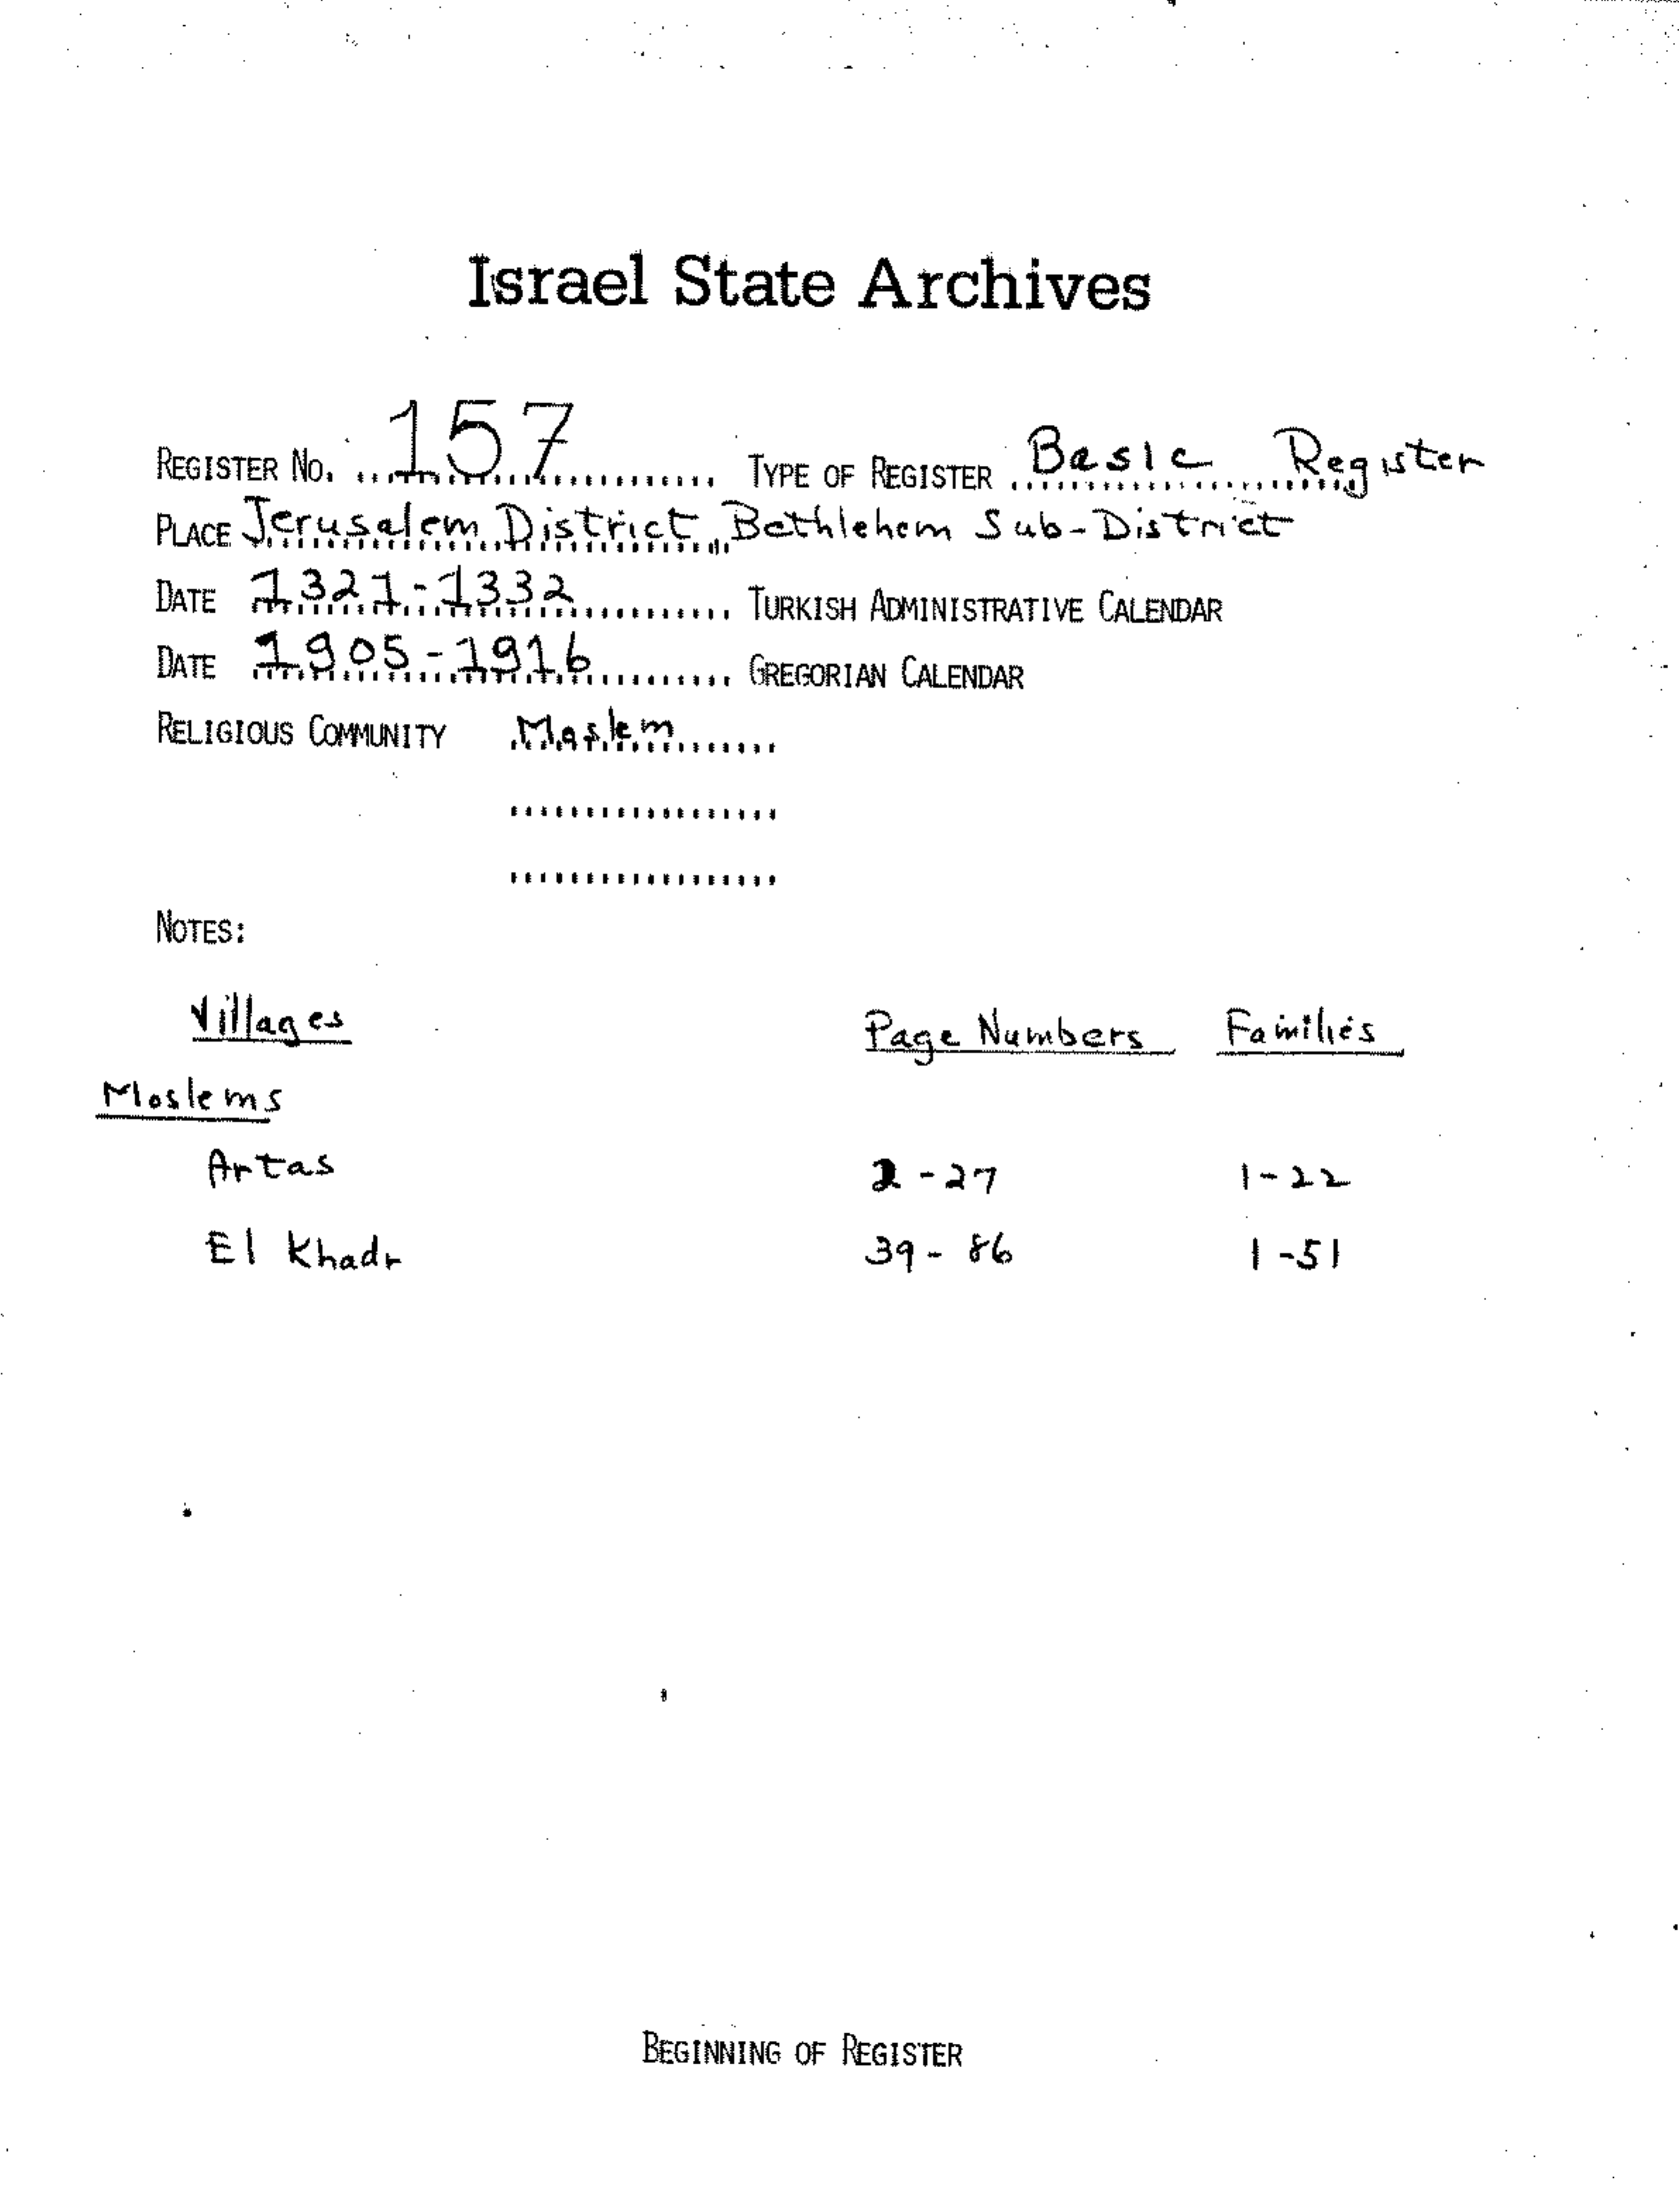 Israel State Archives
REGISTER No. 157 TYPE OF REGISTER Basic Register
PLACE Jerusalem District, Bethlehem Sub-District
DATE 1321-1332 TURKISH ADMINISTRATIVE CALENDAR
DATE 1905-1916 GREGORIAN CALENDAR
RELIGIOUS COMMUNITY Moslem
NOTES:
Villages Page Numbers Families
Moslems
Artas 2-27 1-22
El Khadr 39-86 1-51
BEGINNING OF REGISTER